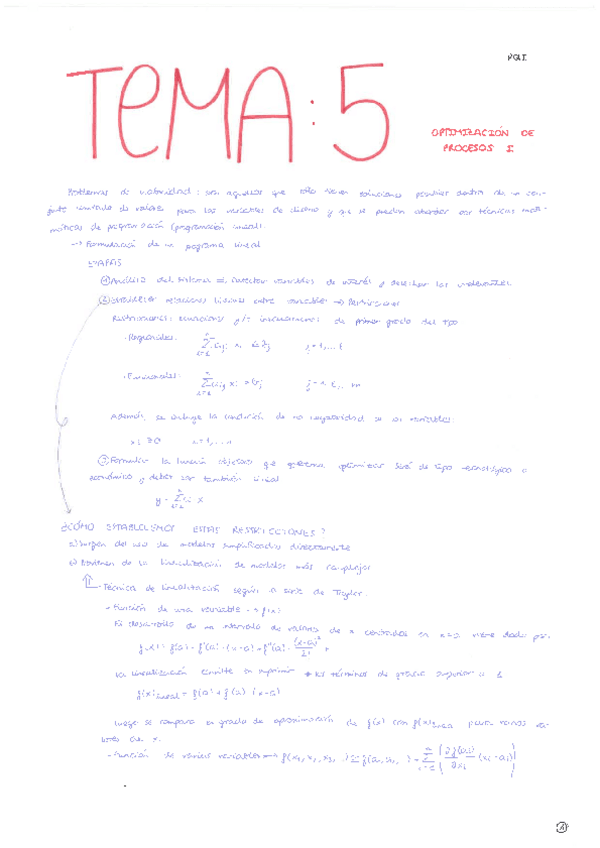 PQI I
TEMA: 5
OPTIMIZACIÓN DE
PROCESOS I
Problemas de : son aquellos que sólo tienen soluciones posibles dentro de un con-
junto de valores para las variables de diseño y que se pueden abordar por técnicas mate-
máticas de programación (programación lineal).
→ Formulación de un programa lineal
ETAPAS
① Análisis del sistema variables de interés y desechar las
② Establecer relaciones lineales entre variables → Restricciones
Restricciones: ecuaciones y/o inecuaciones de primer grado del tipo
· Regionales:
· Funcionales:
Además, se incluye la condición de no negatividad de las variables:
③ Formular la función objetivo que queremos optimizar. Será de tipo tecnológico o
económico y deber ser también lineal
¿CÓMO ESTABLECEMOS ESTAS RESTRICCIONES?
a) Surgen del uso de modelos simplificados directamente
b) Provienen de la linealización de modelos más complejos
Técnica de linealización según la serie de Taylor.
· Función de una variable → f(x)
El desarrollo de un intervalo de valores de x centrados en x=a viene dado por:
f(x) = f(a) + f'(a) · (x-a) + f''(a) · (x-a)²/2! +
La linealización consiste en suprimir los términos de grado superior a 1
f(x)lineal = f(a) + f'(a) (x-a)
Luego se compara el grado de aproximación de f(x) con f(x)lineal para varios va-
lores de x.
· Función de varias variables →